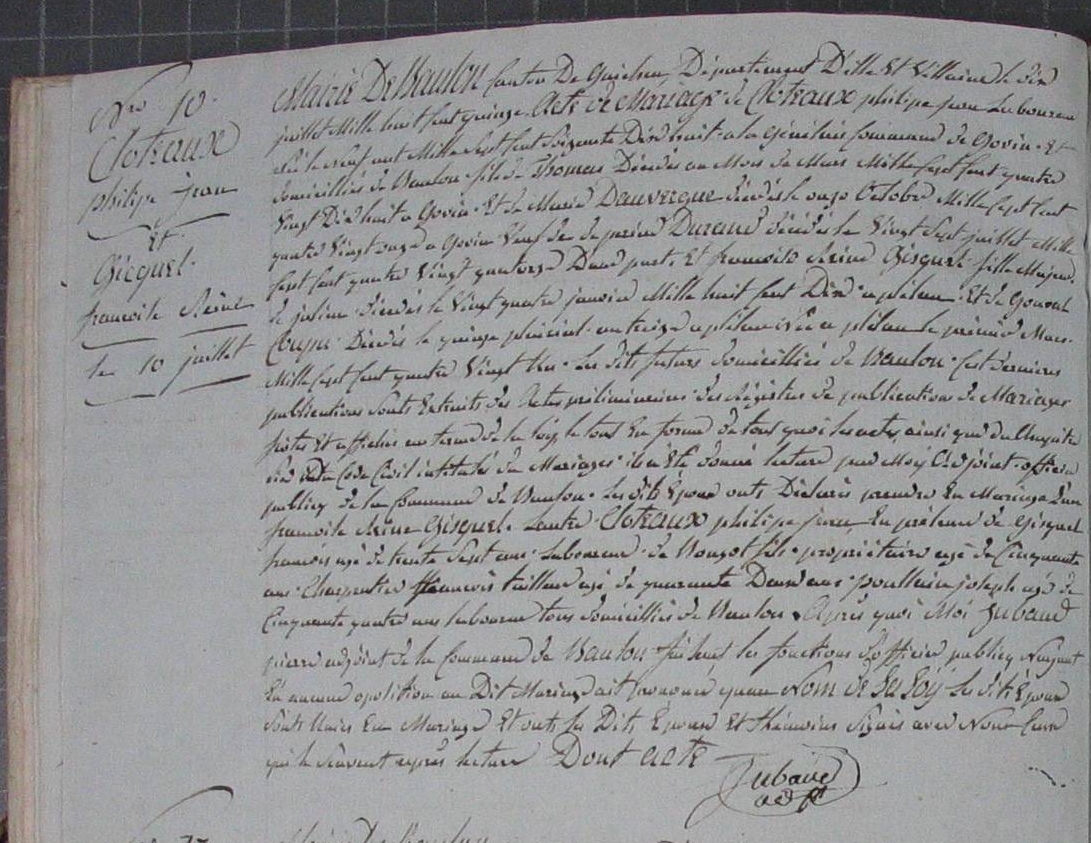 Nro 10.
Cloteaux
philipe jean
Et
Gicquel.
francoise Reine
le 10 juillet
Mairie De Baulon Canton De Guichen, Département D'ille Et Villaine le dix
juillet Mille huit Cent quinze. Acte de Mariage de Cloteaux philipe jean Laboureur
née le neuf Mille Sept Cent Soixante Dix huit a la Commune de Goven. Et
domicilliés de Baulon fils de Thomas Décédés au Mois de Mars Mille Sept Cent quatre
Vingt Dix huit a Goven. Et de Marie Dauvergne décédés le onze Octobre Mille Sept Cent
quatre Vingt onze a Goven Veuf de perine Durand décédés le Vingt Sept juillet Mille
Sept Cent quatre Vingt quatorze Dune part. Et francoise Reine Gicquel fille Majeure
de julien décédés le Vingt quatre janvier Mille huit Cent Dix a plélan. Et de
Coupu Décédés le quinze an treize a plélan née a plélan le premier Mars
Mille Sept Cent quatre Vingt Un. Les dits futurs domicilliés de Baulon. Ces derniers
publications Sonts Extraits des Actes préliminaires des Régistres de publications de Mariages
faites Et affichés au terme de la loy le tout En forme de tous quoi les actes ainsi que du Chapitre
Six du Code Civil intitulé du Mariages il a Eté donné lecture par Moy Adjoint officier
publicq de la Commune de Baulon. Les dits Epoux onts Déclarés prendre En Mariage L'une
francoise Reine Gicquel. Lautre Cloteaux philipe jean En présence de Gicquel
francois agé de trente Sept ans Laboureur. de Nougot fils propriétaire agé de Cinquante
ans Charpentier francois tailleur agé de quarante Deux ans. poullain joseph agé de
Cinquante quatre ans laboureur tous domicilliés de Baulon. Après quoi Moi Jubaud
pierre adjoint de la Commune de Baulon faisant les fonctions d'officier publicq Nayant
Eu aucune oposition au Dit Mariage ait prononcé quau Nom de La Loy les dits Epoux
Sonts Unies En Mariage Et onts les Dits Epoux Et thémoins Signés avec Nous Ceux
qui le Scavent après lecture Dont acte
Jubaud
adjt